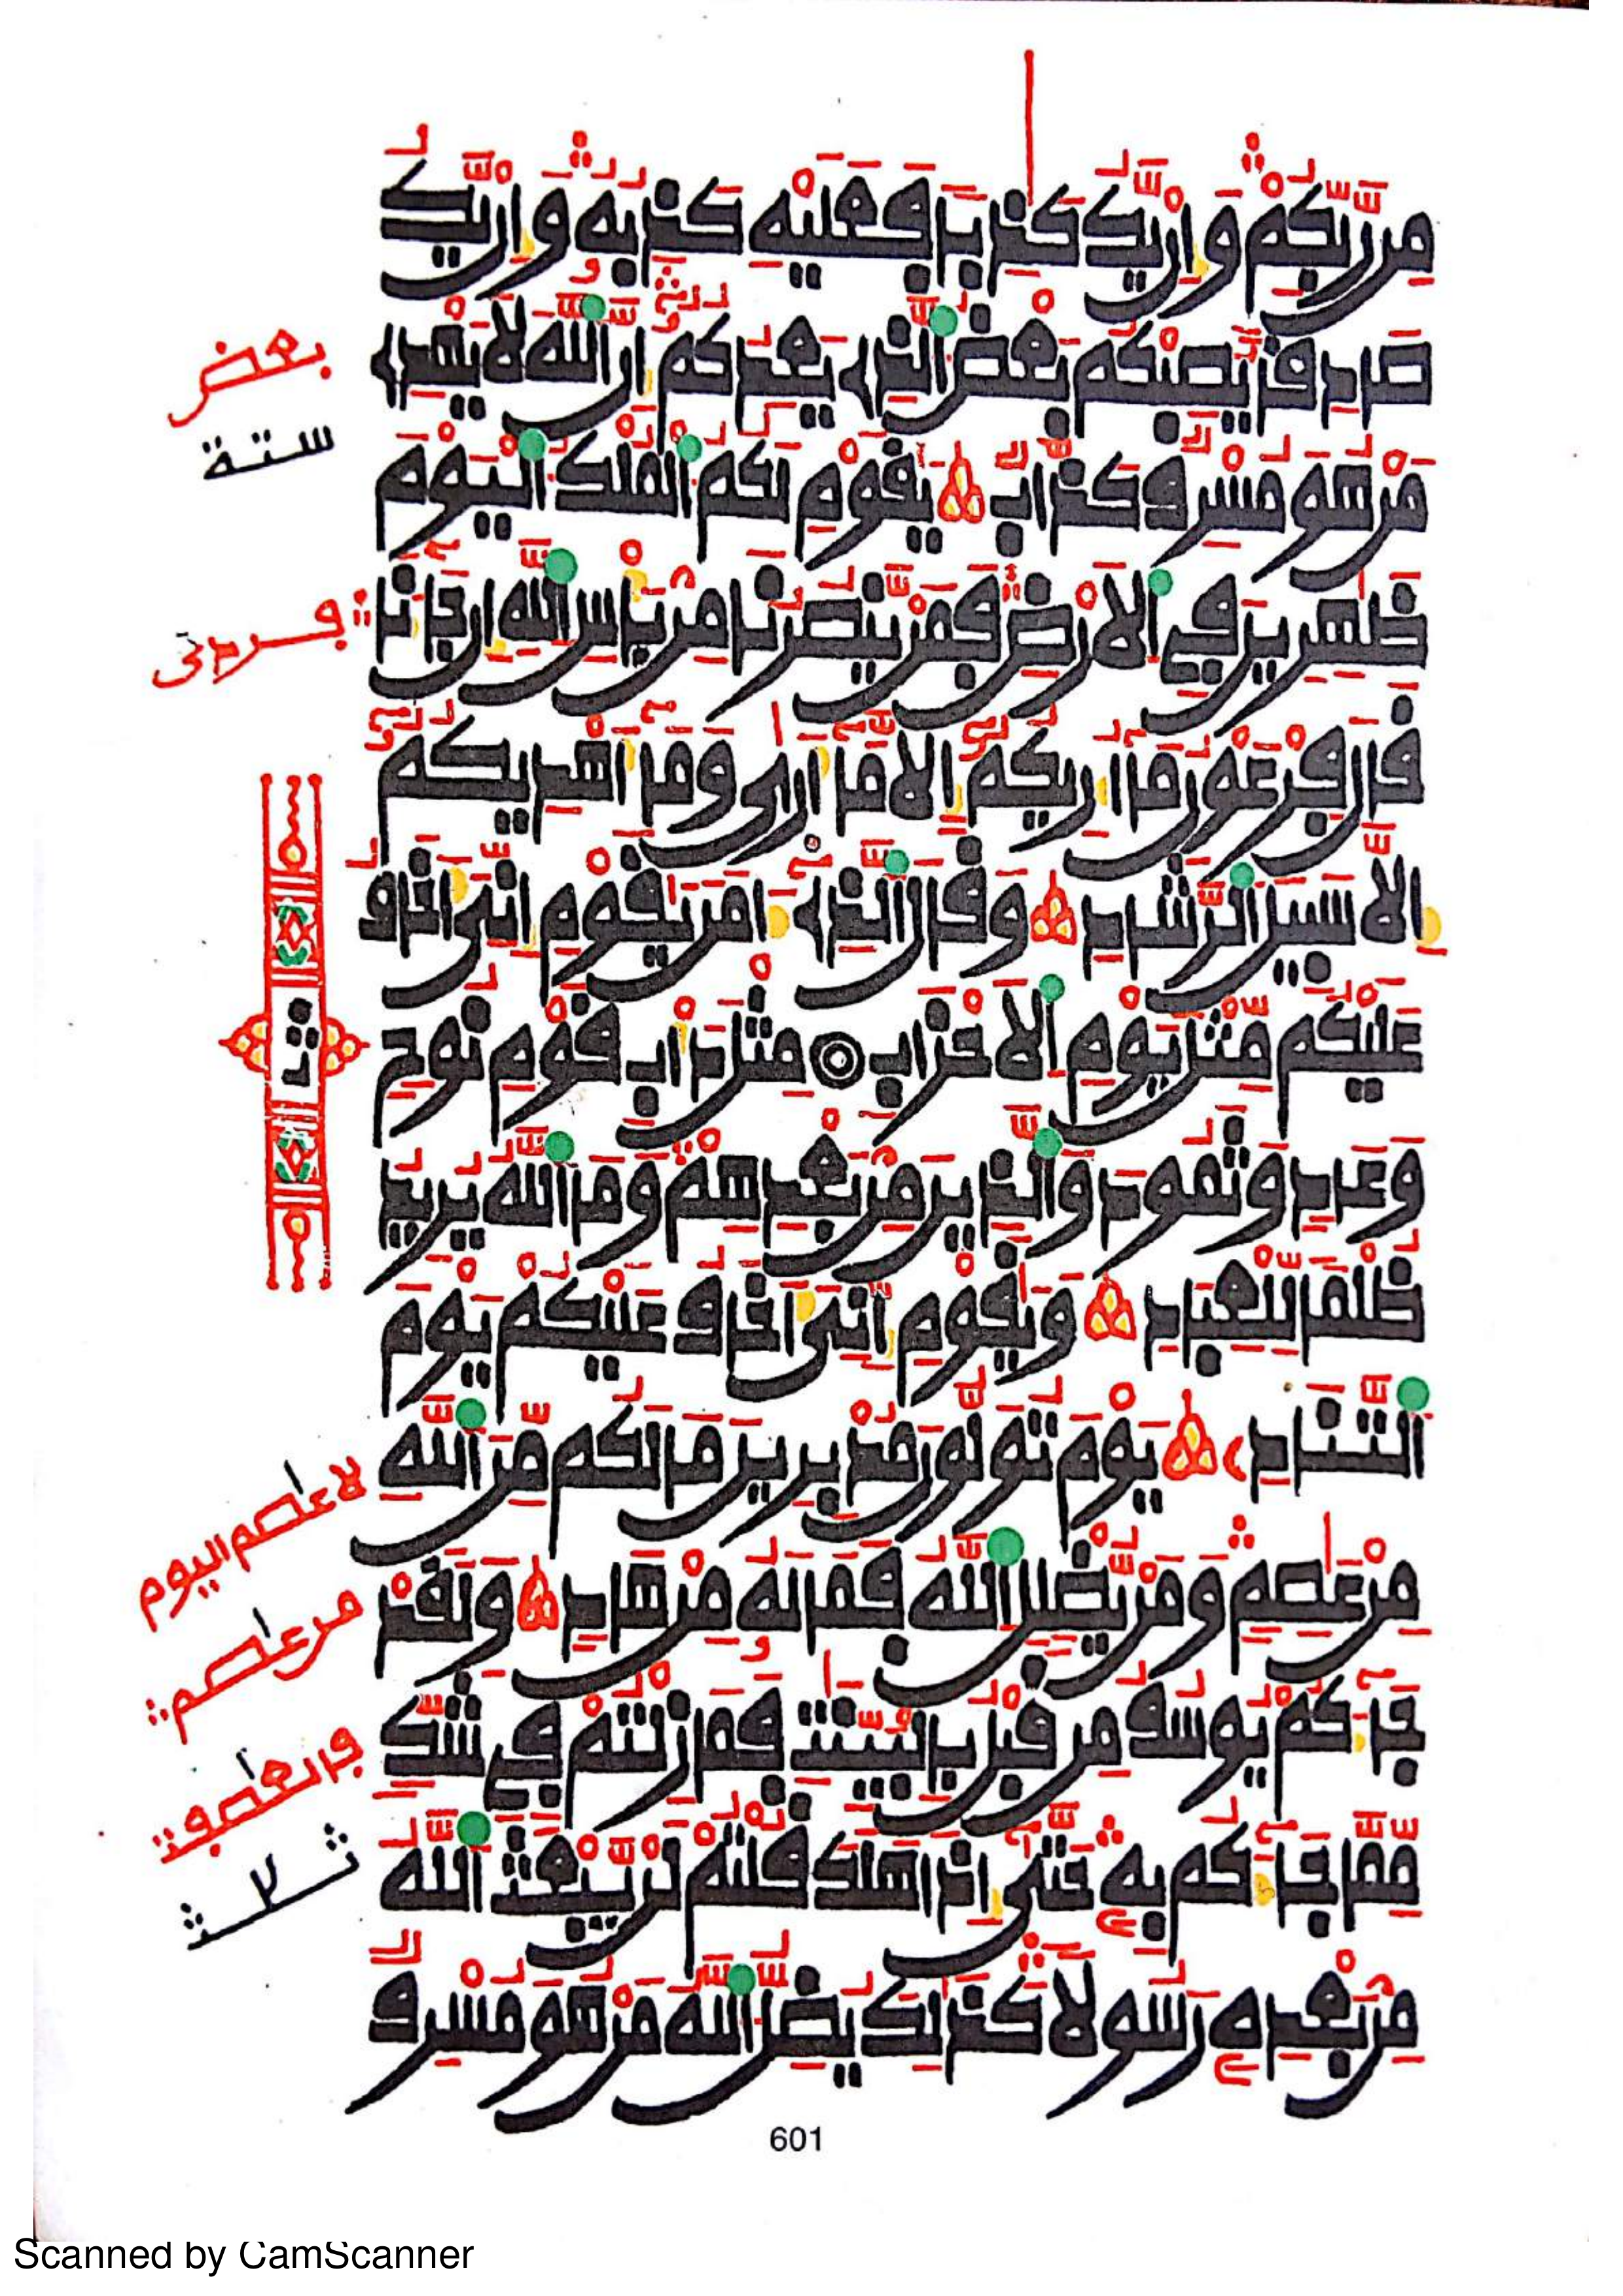 من ربكم وان يك كذبا فعليه كذبه وان يك
صادقا يصبكم بعض الذي يعدكم ان الله لا يهدي
بعض
ستة
من هو مسرف كذاب يقوم لكم الملك اليوم
ظهرين في الارض فمن ينصرنا من باس الله ان جانا
قال فرعون ما اريكم الا ما ارى وما اهديكم
الا سبيل الرشاد وقال الذي امن يقوم اني اخاف
عليكم مثل يوم الاحزاب مثل داب قوم نوح
وعاد وثمود والذين من بعدهم وما الله يريد
ظلما للعباد ويقوم اني اخاف عليكم يوم
التناد يوم تولون مدبرين ما لكم من الله
لا عاصم اليوم
من عصم ومن يضلل الله فما له من هاد ولقد
من عاصم
جاكم يوسف من قبل بالبينت فما زلتم في شك
مما جاكم به حتى اذا هلك قلتم لن يبعث الله
من بعده رسولا كذلك يضل الله من هو مسرف
601
Scanned by CamScanner